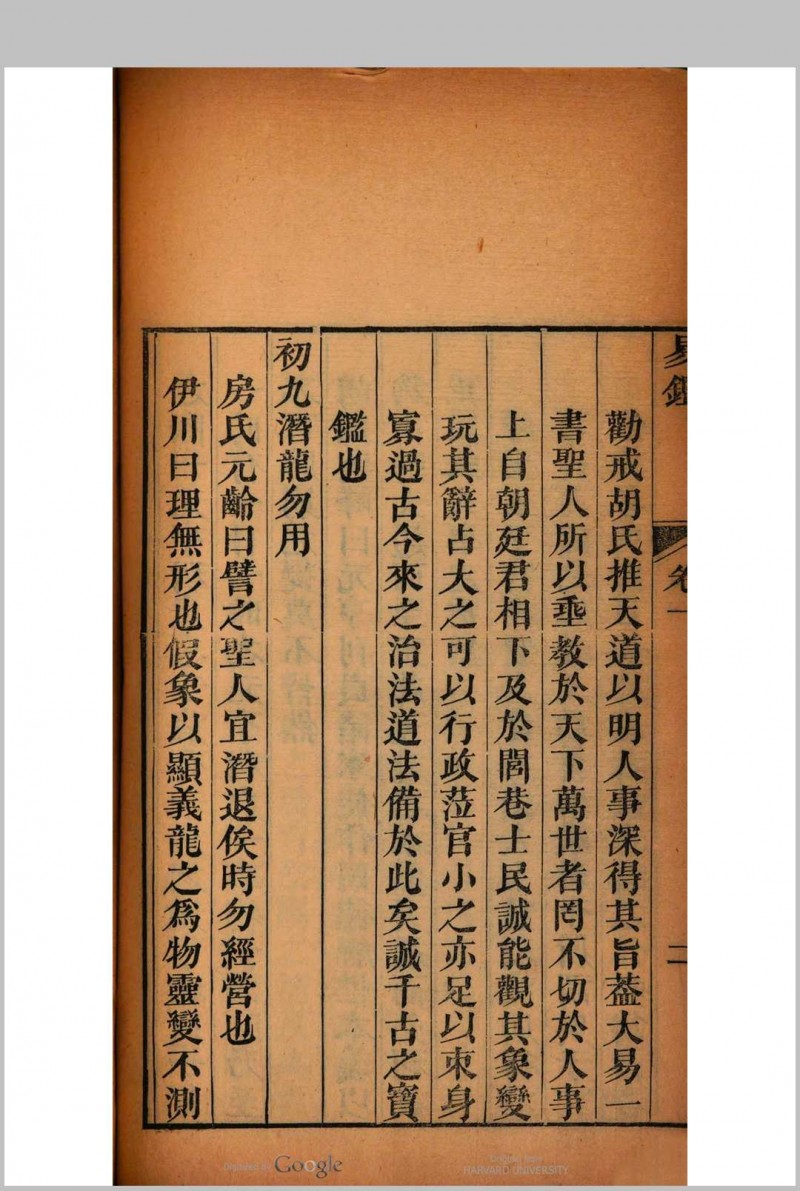 易鑑 卷一 二
勸戒胡氏推天道以明人事深得其旨葢大易一
書聖人所以埀教於天下萬世者罔不切於人事
上自朝廷君相下及於閭巷士民誠能觀其象變
玩其辭占大之可以行政蒞官小之亦足以束身
寡過古今來之治法道法備於此矣誠千古之寶
鑑也
初九潛龍勿用
房氏元齡曰譬之聖人宜潛退俟時勿經營也
伊川曰理無形也假象以顯義龍之爲物靈變不測
Digitized by Google
Original from
HARVARD UNIVERSITY